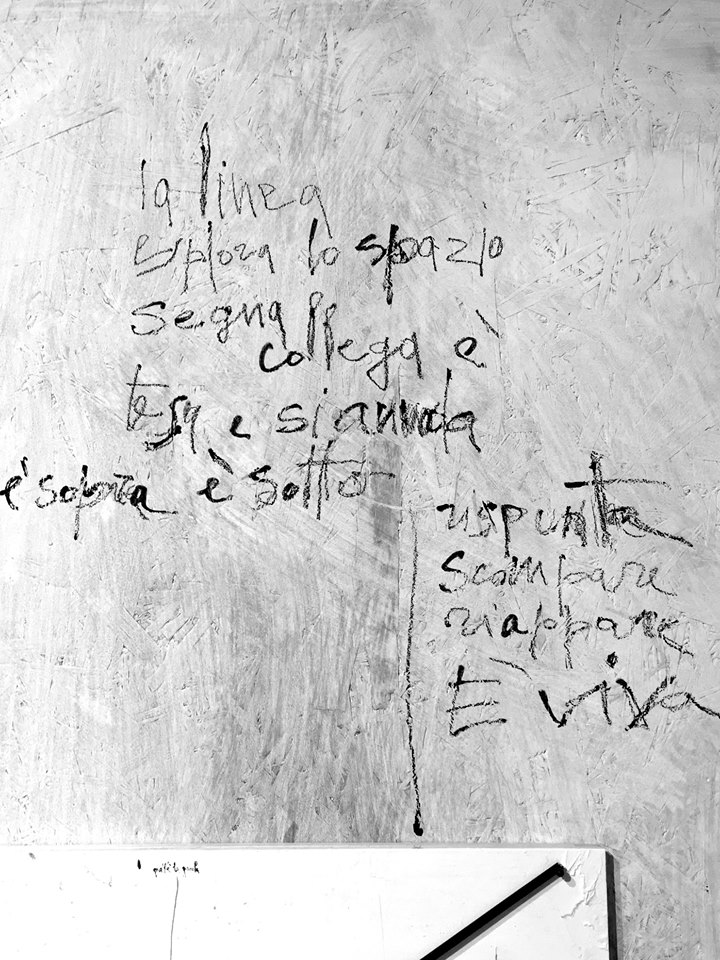 la linea
esplora lo spazio
segna
collega è
tesa e si annoda
è sopra è sotto
rispunta
scompare
riappare
È viva